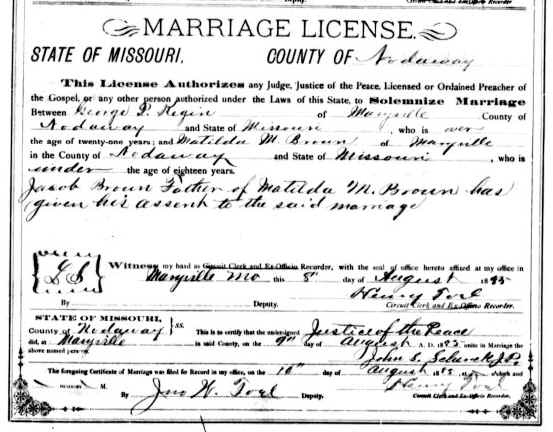 MARRIAGE LICENSE.
STATE OF MISSOURI. COUNTY OF Nodaway
This License Authorizes any Judge, Justice of the Peace, Licensed or Ordained Preacher of
the Gospel, or any other person authorized under the Laws of this State, to Solemnize Marriage
Between George P. of Maryville County of
Nodaway and State of Missouri, who is over
the age of twenty-one years; and Matilda M. Broun of Maryville
in the County of Nodaway and State of Missouri, who is
under the age of eighteen years.
Jacob Broun Father of Matilda M. Broun has
given his assent to the said marriage
LS Witness my hand as Circuit Clerk and Ex-Officio Recorder, with the seal of office hereto affixed at my office in
Maryville Mo this 8" day of August 1885
Henry Toel
By Deputy. Circuit Clerk and Ex-Officio Recorder.
STATE OF MISSOURI,
County of Nodaway ss. This is to certify that the undersigned Justice of the Peace
did, at Maryville in said County, on the 9th day of August A. D. 1885 unite in Marriage the
above named persons. John S. J.P.
The foregoing Certificate of Marriage was filed for Record in my office, on the 10" day of August 1885, at o'clock and
M. Henry Toel
By Jno W. Toel Deputy. Circuit Clerk and Ex-Officio Recorder.